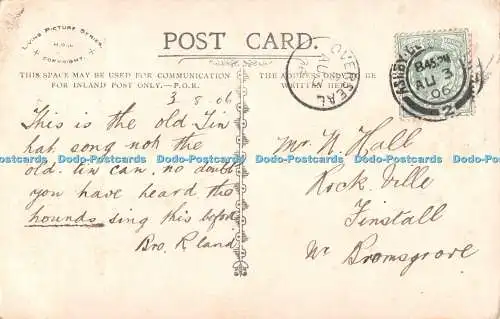 LIVING PICTURE SERIES.
COPYRIGHT.
POST CARD.
THIS SPACE MAY BE USED FOR COMMUNICATION
FOR INLAND POST ONLY.—P.O.R.
THE ADDRESS ONLY
WRITTEN HERE
OVERSEAL
AU 3
845PM
AU 3
06
2
3 8 06
This is the old Tin
hat song not the
old tin can, no doubt
you have heard this
hounds sing this before
Bro. R. land
Mr. N. Hall
Rock Ville
Finstall
Nr Bromsgrove
Dodo-Postcards Dodo-Postcards Dodo-Postcards Dodo-Postcards